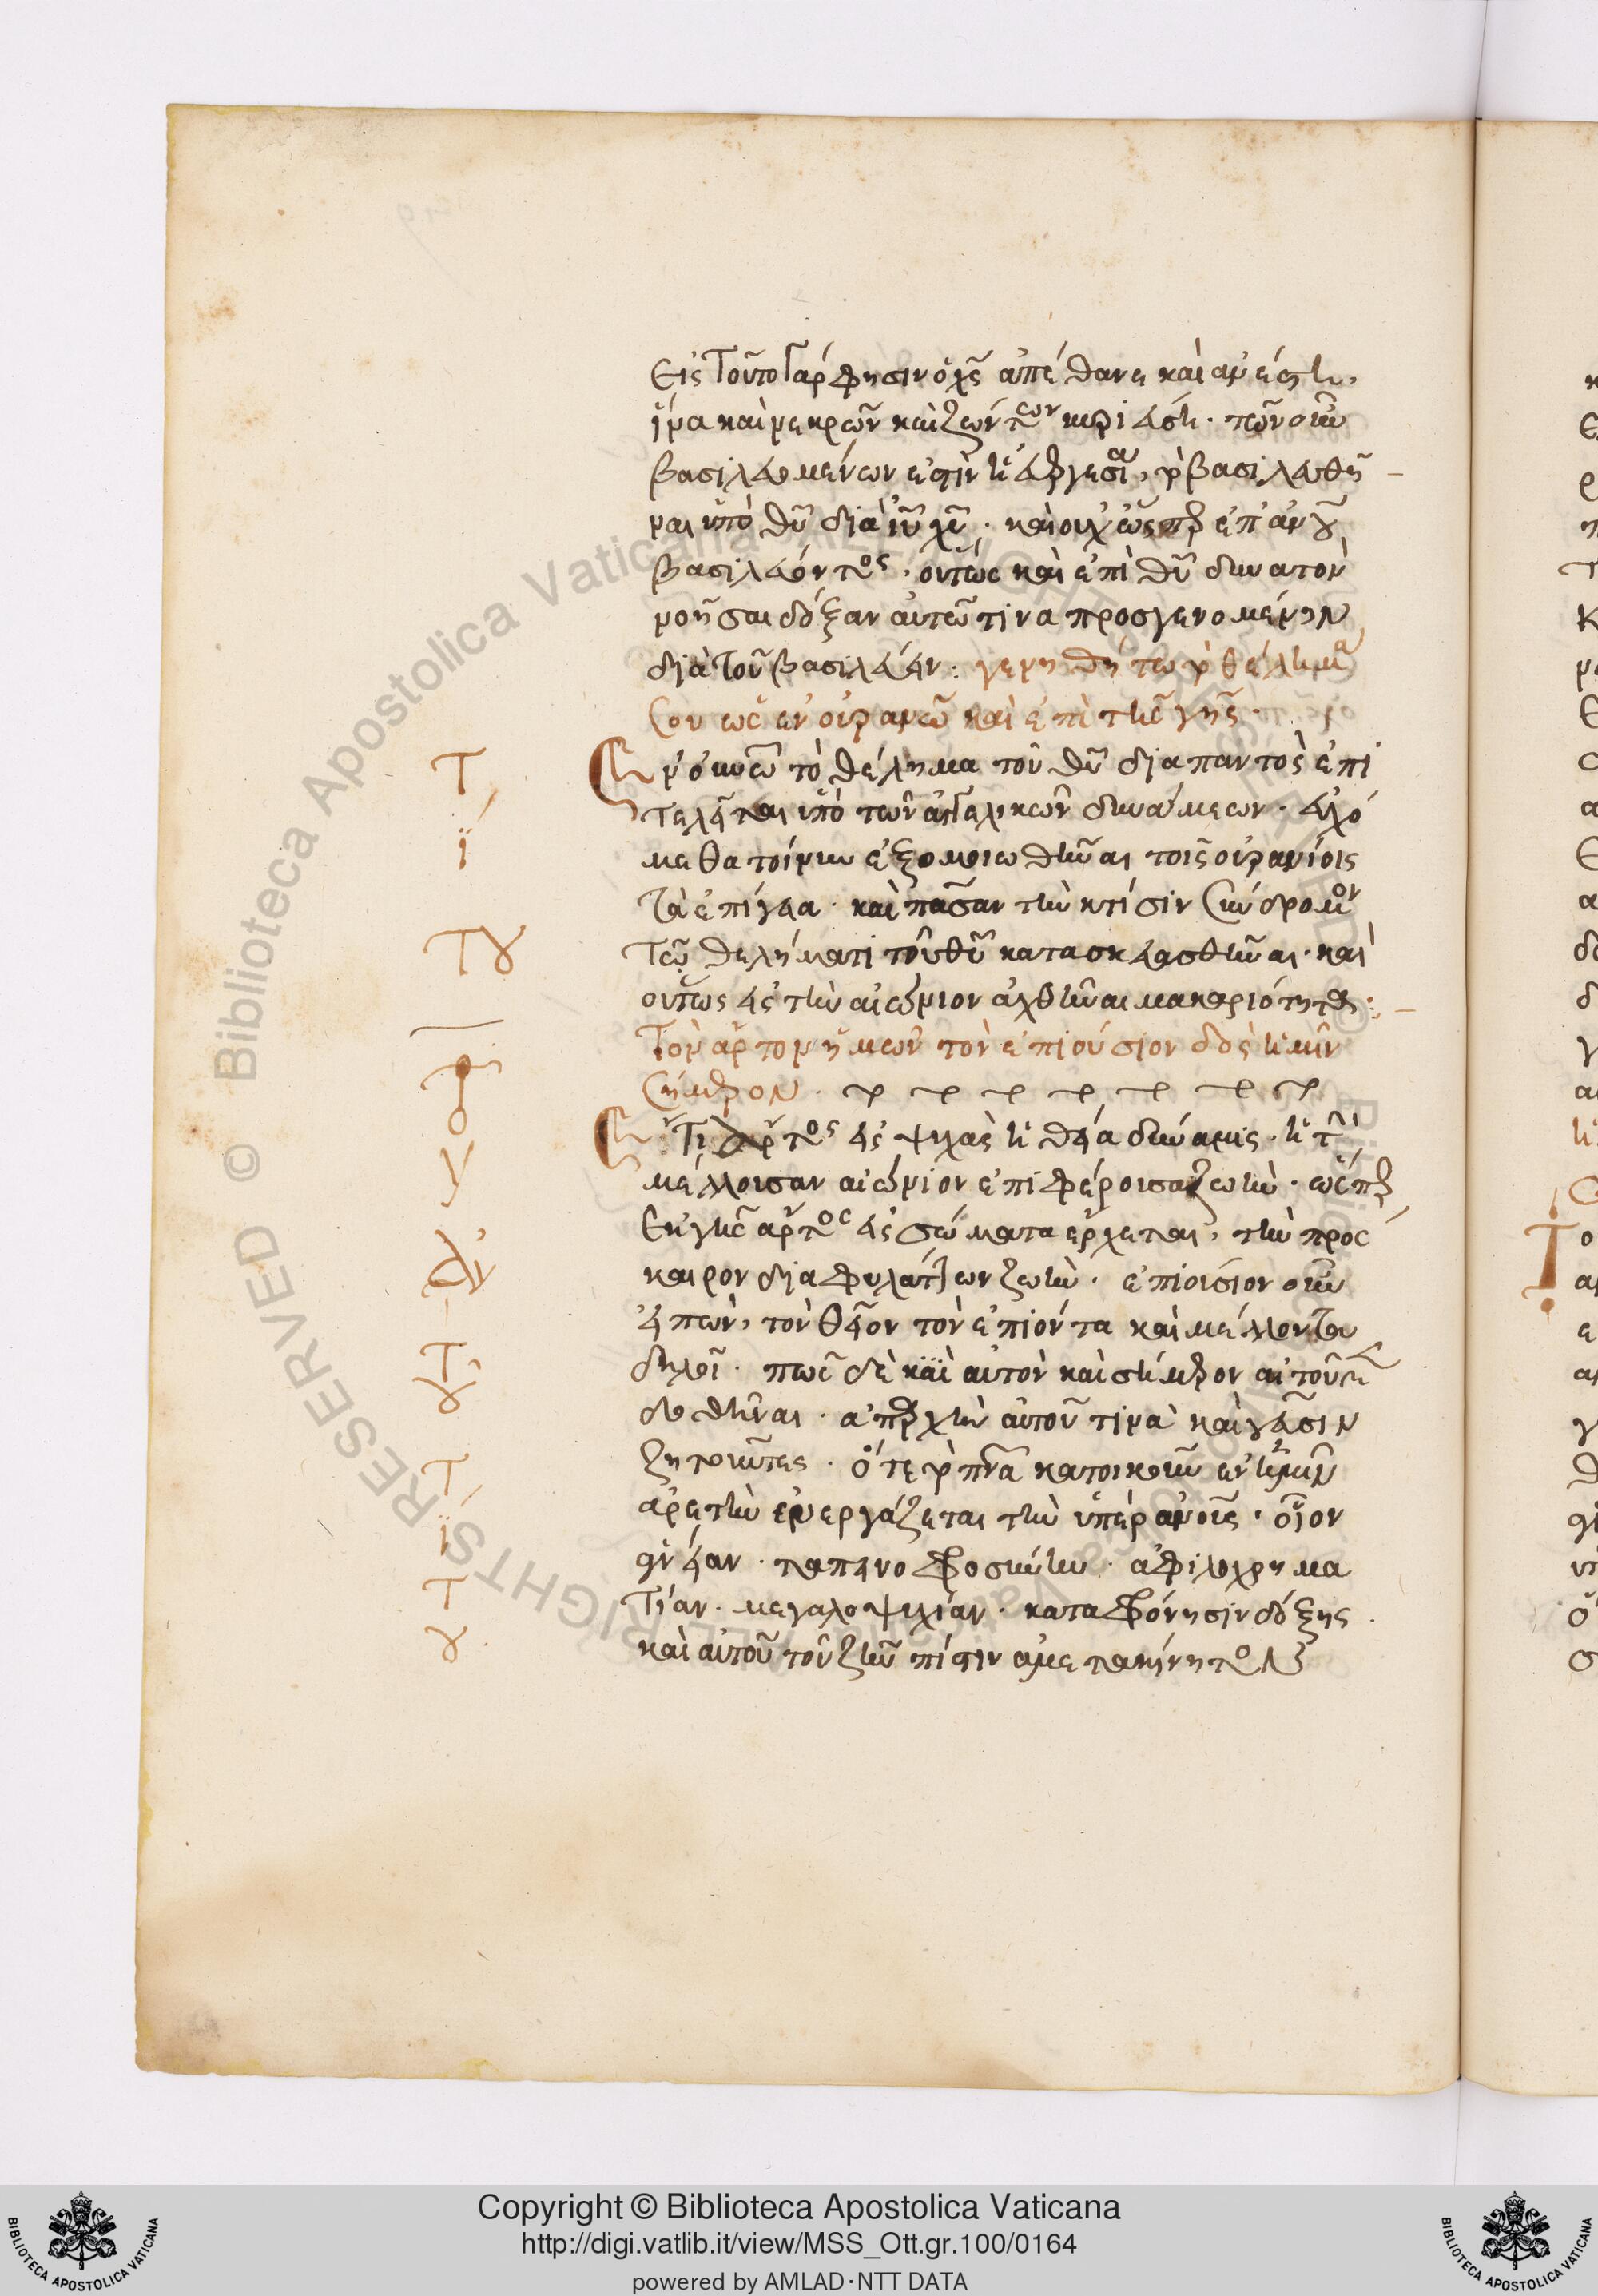 Εἰς τοῦτο γάρ φησιν ὁ χς ἀπέθανε καὶ ἀνέστη,
ἵνα καὶ νεκρῶν καὶ ζώντων κυριεύση. τῶν οὖν
βασιλευομένων ἐστὶν ἡ εὐεργεσία, τὸ βασιλευθῆ
ναι ὑπὸ θυ διὰ ιυ χυ. καὶ οὐχ ὥσπερ ἐπ' ἀνου
βασιλεύοντος, οὕτως καὶ ἐπὶ θυ δυνατὸν
νοῆσαι δόξαν αὐτῶ τινα προσγενομένην
διὰ τοῦ βασιλεύειν: γενηθήτω τὸ θέλημα
σου ὡς ἐν οὐρανῶ καὶ ἐπὶ τῆς γῆς.
Ἐν οὐνῶ τὸ θέλημα τοῦ θυ διαπαντὸς ἐπι
τελεῖται ὑπὸ τῶν ἀγγελικῶν δυνάμεων. εὐχό
μεθα τοίνυν ἐξομοιωθῆναι τοῖς οὐρανίοις
τὰ ἐπίγεια. καὶ πᾶσαν τὴν κτίσιν σύνδρομον
τῶ θελήματι τοῦ θυ κατασκευασθῆναι. καὶ
οὕτως εἰς τὴν αἰώνιον ἀχθῆναι μακαριότητα:
Τὸν ἄρτον ἡμῶν τὸν ἐπιούσιον δὸς ἡμῖν
σήμερον.
Ἔτι ἄρτος εἰς ψυχὰς ἡ θεία δύναμις. ἡ τὴν
μέλλουσαν αἰώνιον ἐπιφέρουσα ζωήν. ὥσπερ
ἐκ γῆς ἄρτος εἰς σώματα ἔρχεται, τὴν πρὸς
καιρον διαφυλάττων ζωήν. ἐπιούσιον οὖν
εἰπὼν, τὸν θεῖον τὸν ἐπιόντα καὶ μέλλοντα
δηλοῖ. πῶς δὲ καὶ αὐτὸν καὶ σήμερον αἰτοῦμεν
δοθῆναι. ἀπαρχὴν αὐτοῦ τινὰ καὶ γεῦσιν
ζητοῦντες. ὅτε τὸ πνα κατοικοῦν ἐν ἡμῖν
ἀρετὴν ἐνεργάζεται τὴν ὑπὲρ ἀνους. οἷον
ἁγνείαν. ταπεινοφροσύνην. ἀφιλοχρημα
τίαν. μεγαλοψυχίαν. καταφρόνησιν δόξης.
καὶ αὐτοῦ τοῦ ζῆν πίστιν ἀμετακίνητον
Copyright © Biblioteca Apostolica Vaticana
http://digi.vatlib.it/view/MSS_Ott.gr.100/0164
powered by AMLAD·NTT DATA